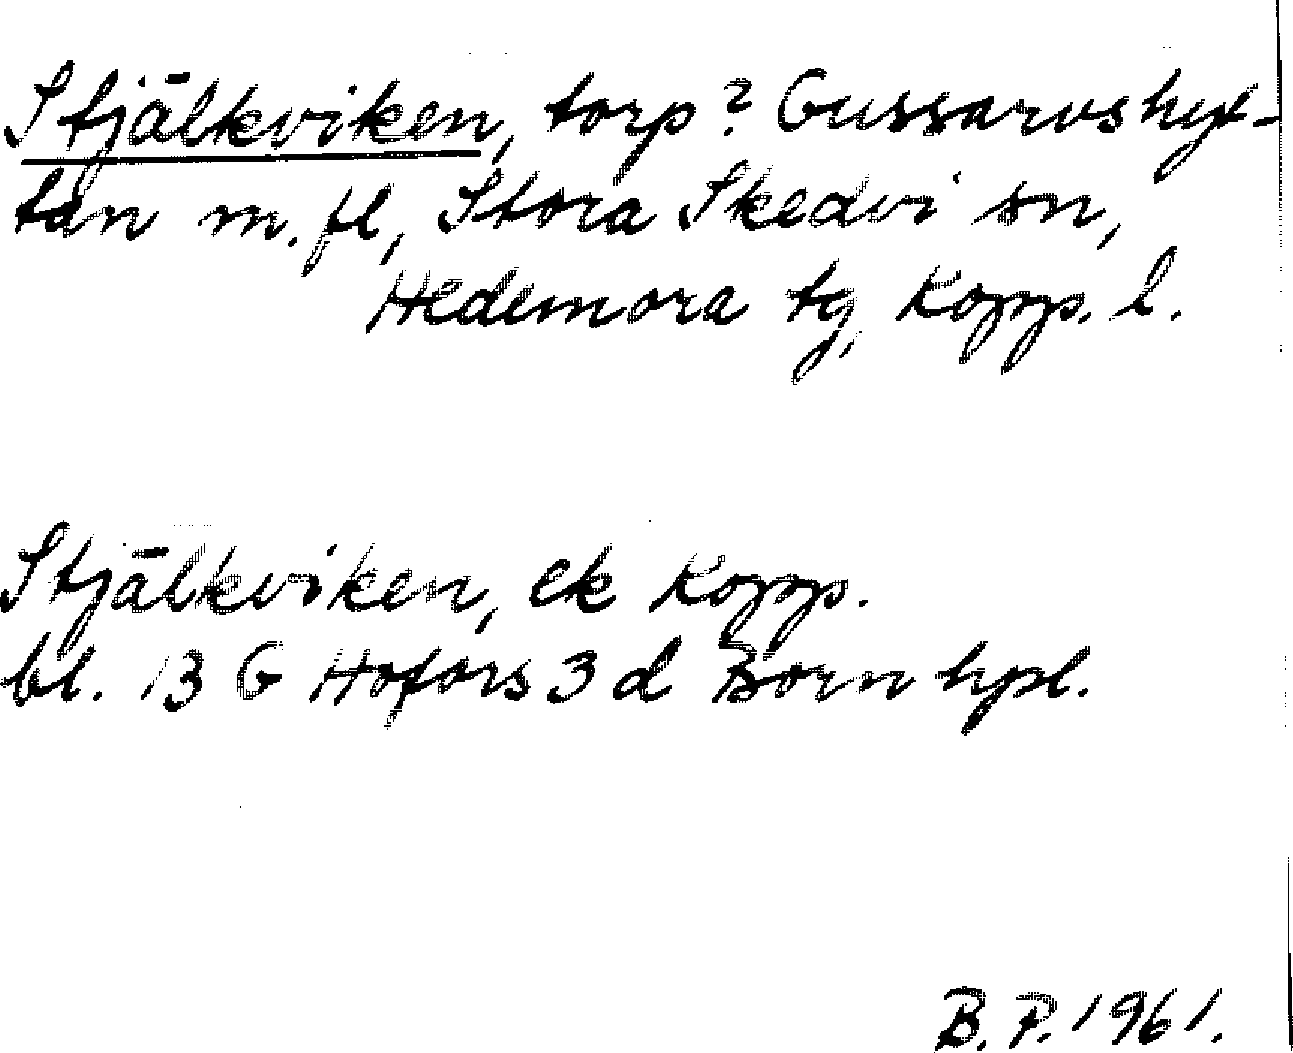 Stjälkviken, torp? Gussarvshyt-
tan m. fl, Stora Skedvi sn,
Hedemora tg, Kopp. l.
Stjälkviken, ek Kopp.
bl. 13 G Hofors 3 d Born hpl.
B. P. 1961.